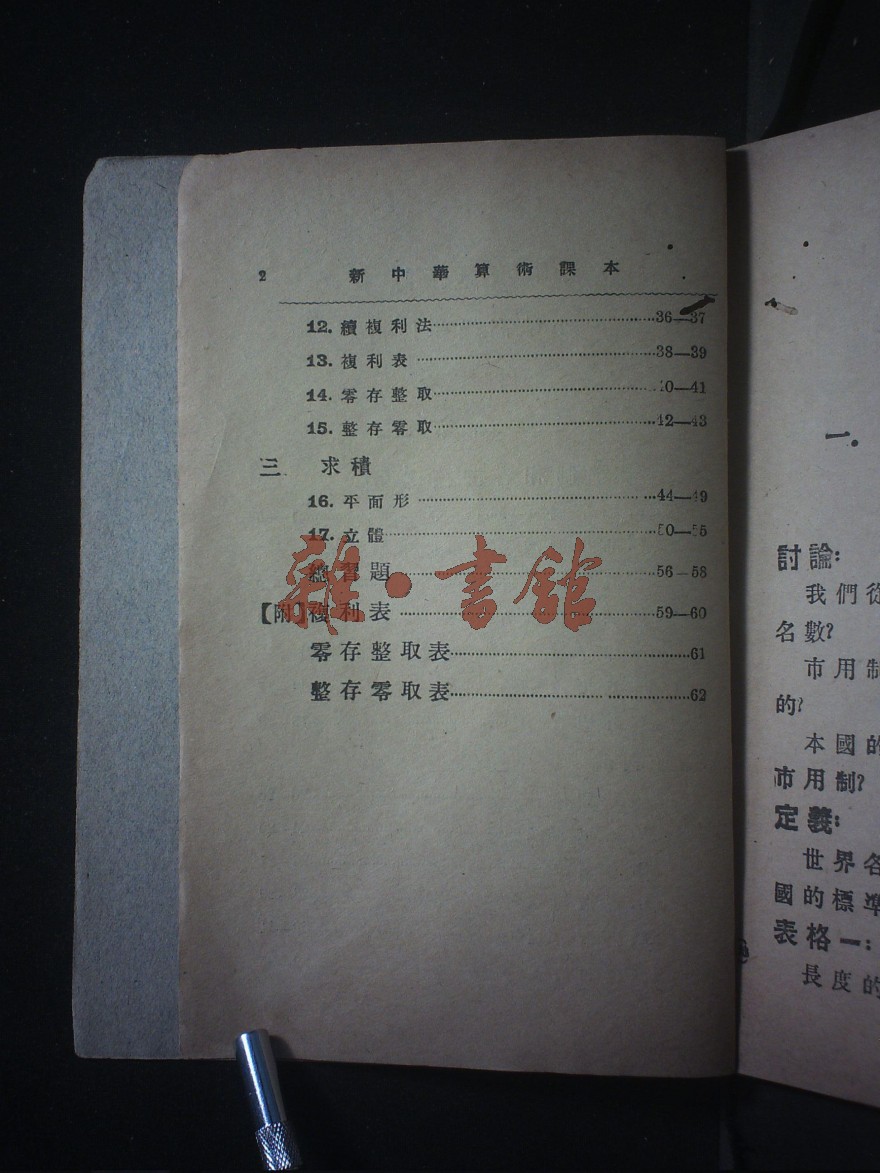 2 新中華算術課本
12. 續複利法……36—37
13. 複利表……38—39
14. 零存整取……40—41
15. 整存零取……42—43
三 求積
16. 平面形……44—49
17. 立體……50—55
總習題……56—58
【附】複利表……59—60
零存整取表……61
整存零取表……62
雜·書館
一.
討論:
我們從
名數?
市用制
的?
本國的
市用制?
定義:
世界各
國的標準
表格一:
長度的